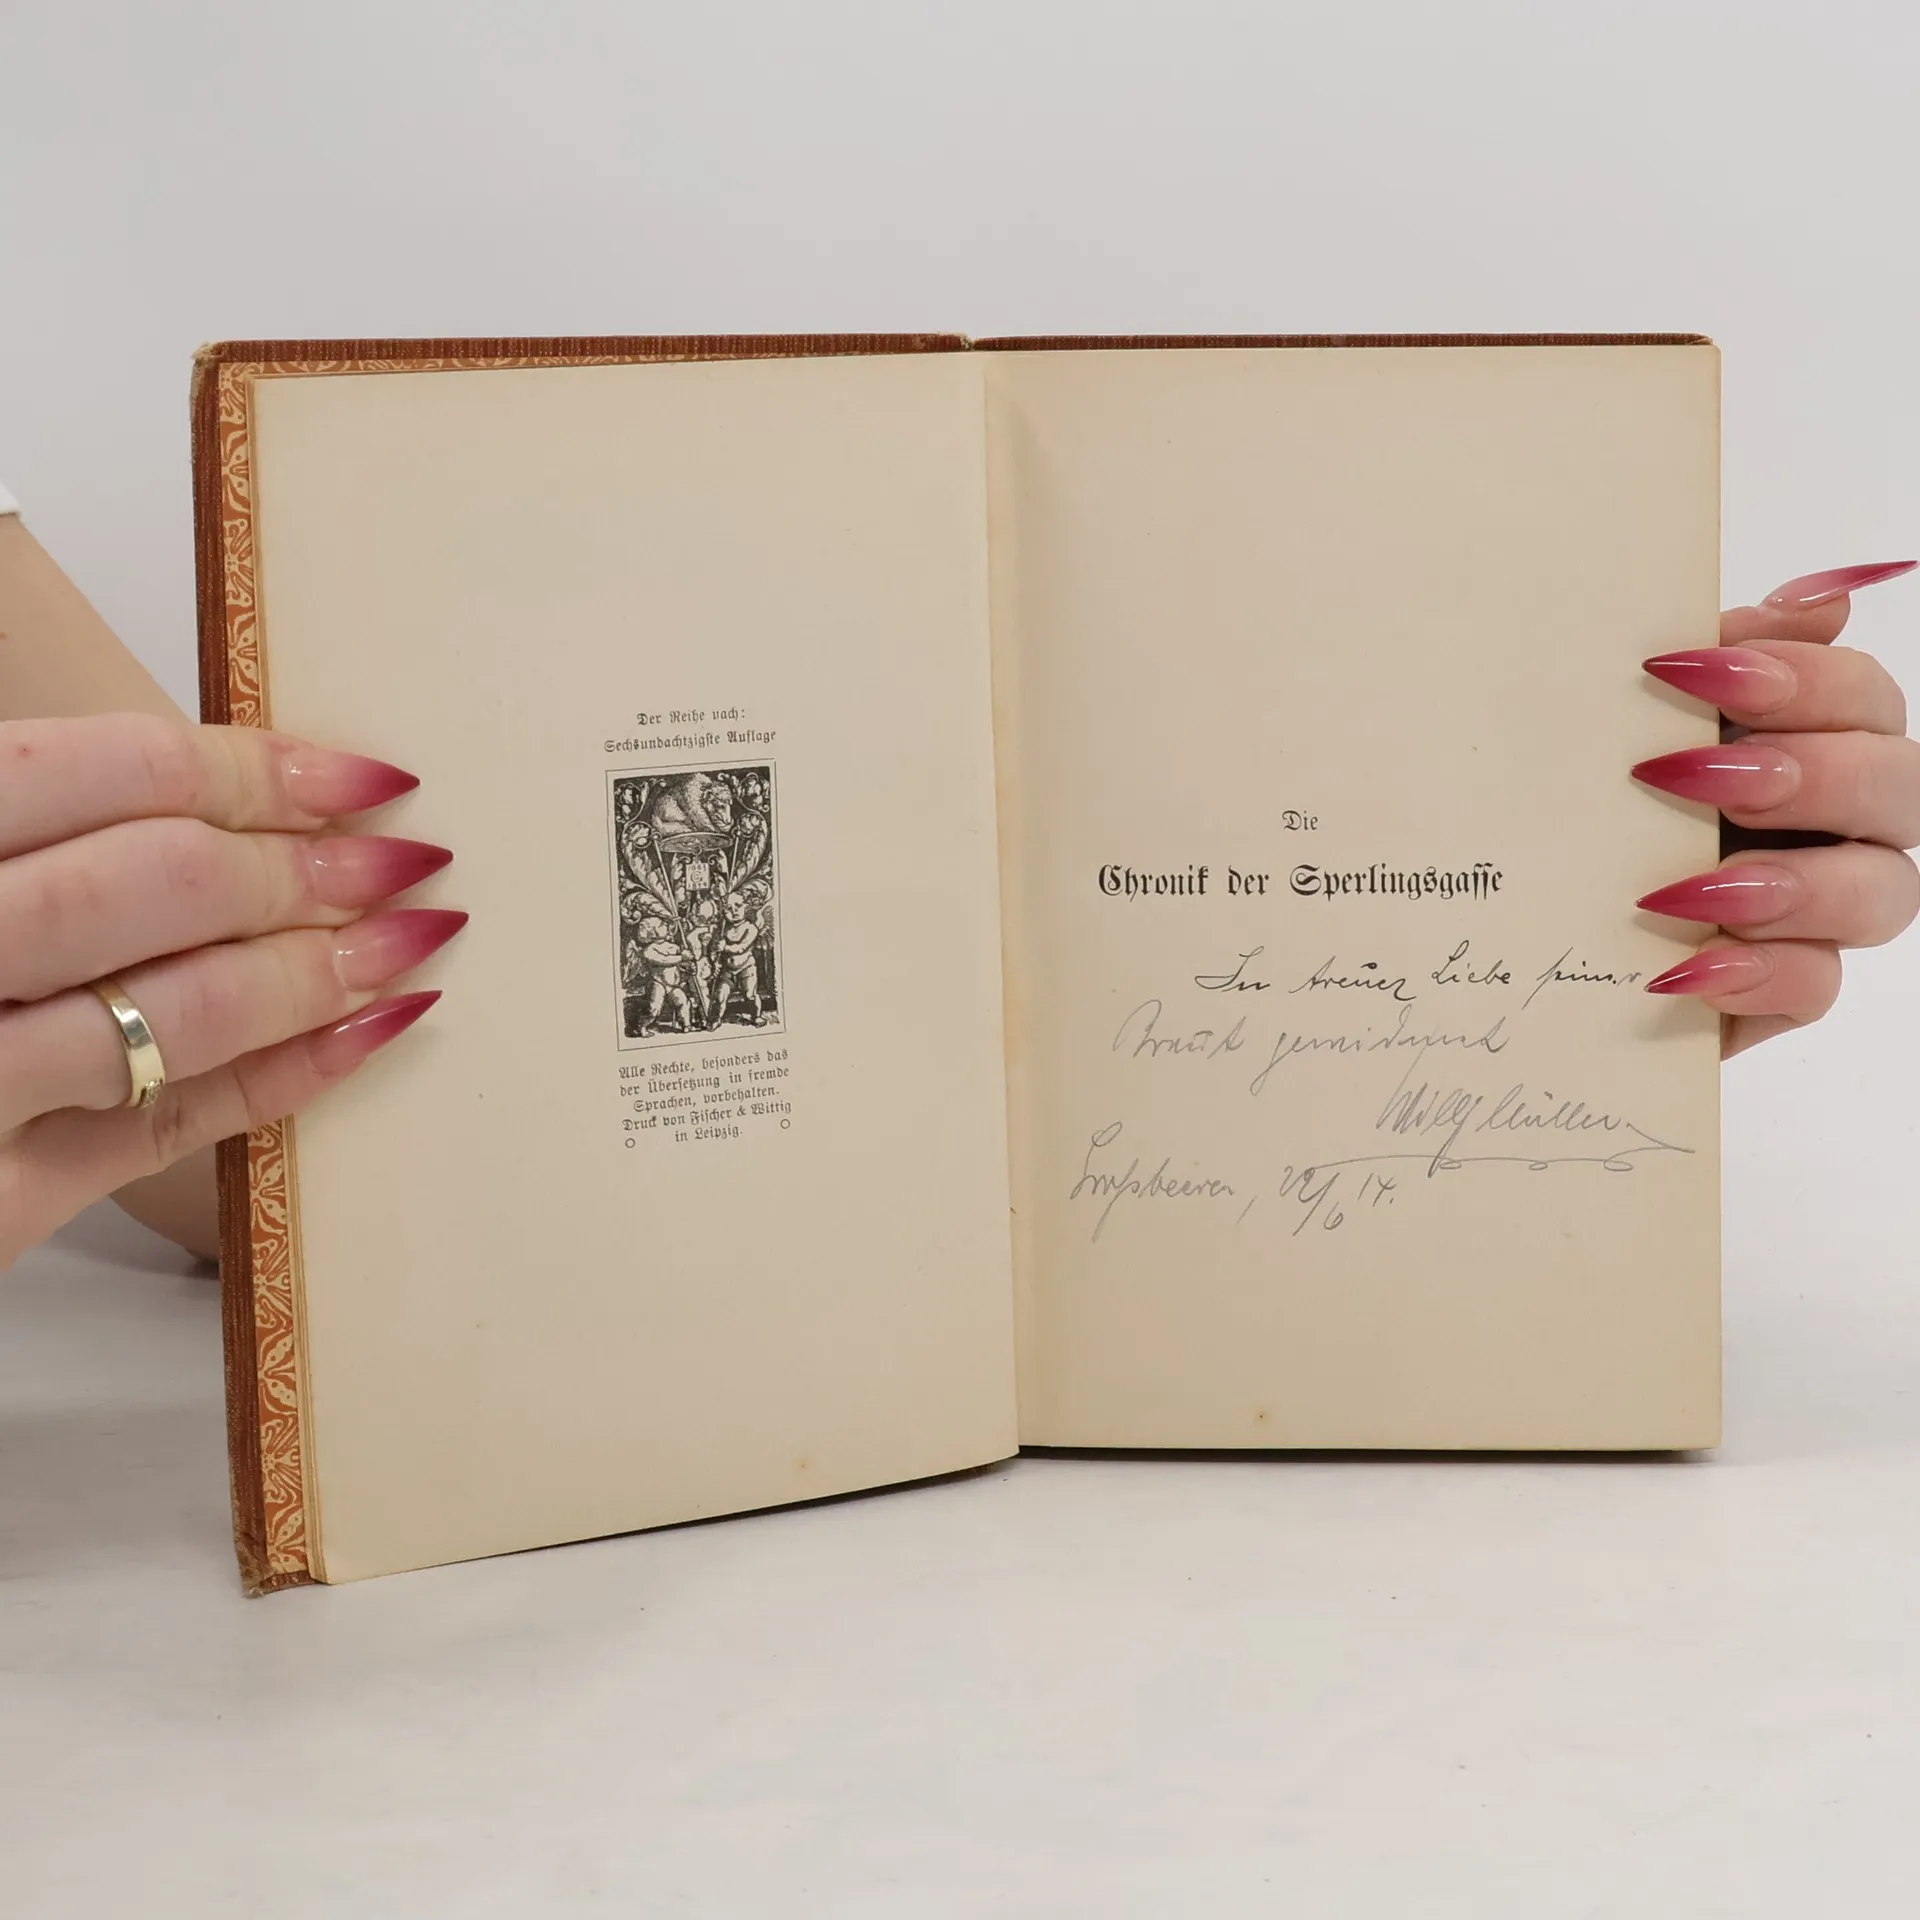 Der Reihe nach:
Sechsundachtzigste Auflage
Alle Rechte, besonders das
der Übersetzung in fremde
Sprachen, vorbehalten.
Druck von Fischer & Wittig
in Leipzig.
Die
Chronik der Sperlingsgasse
In treuer Liebe seiner
Braut gewidmet
Willy Müller.
Großbeeren, 29/6 14.